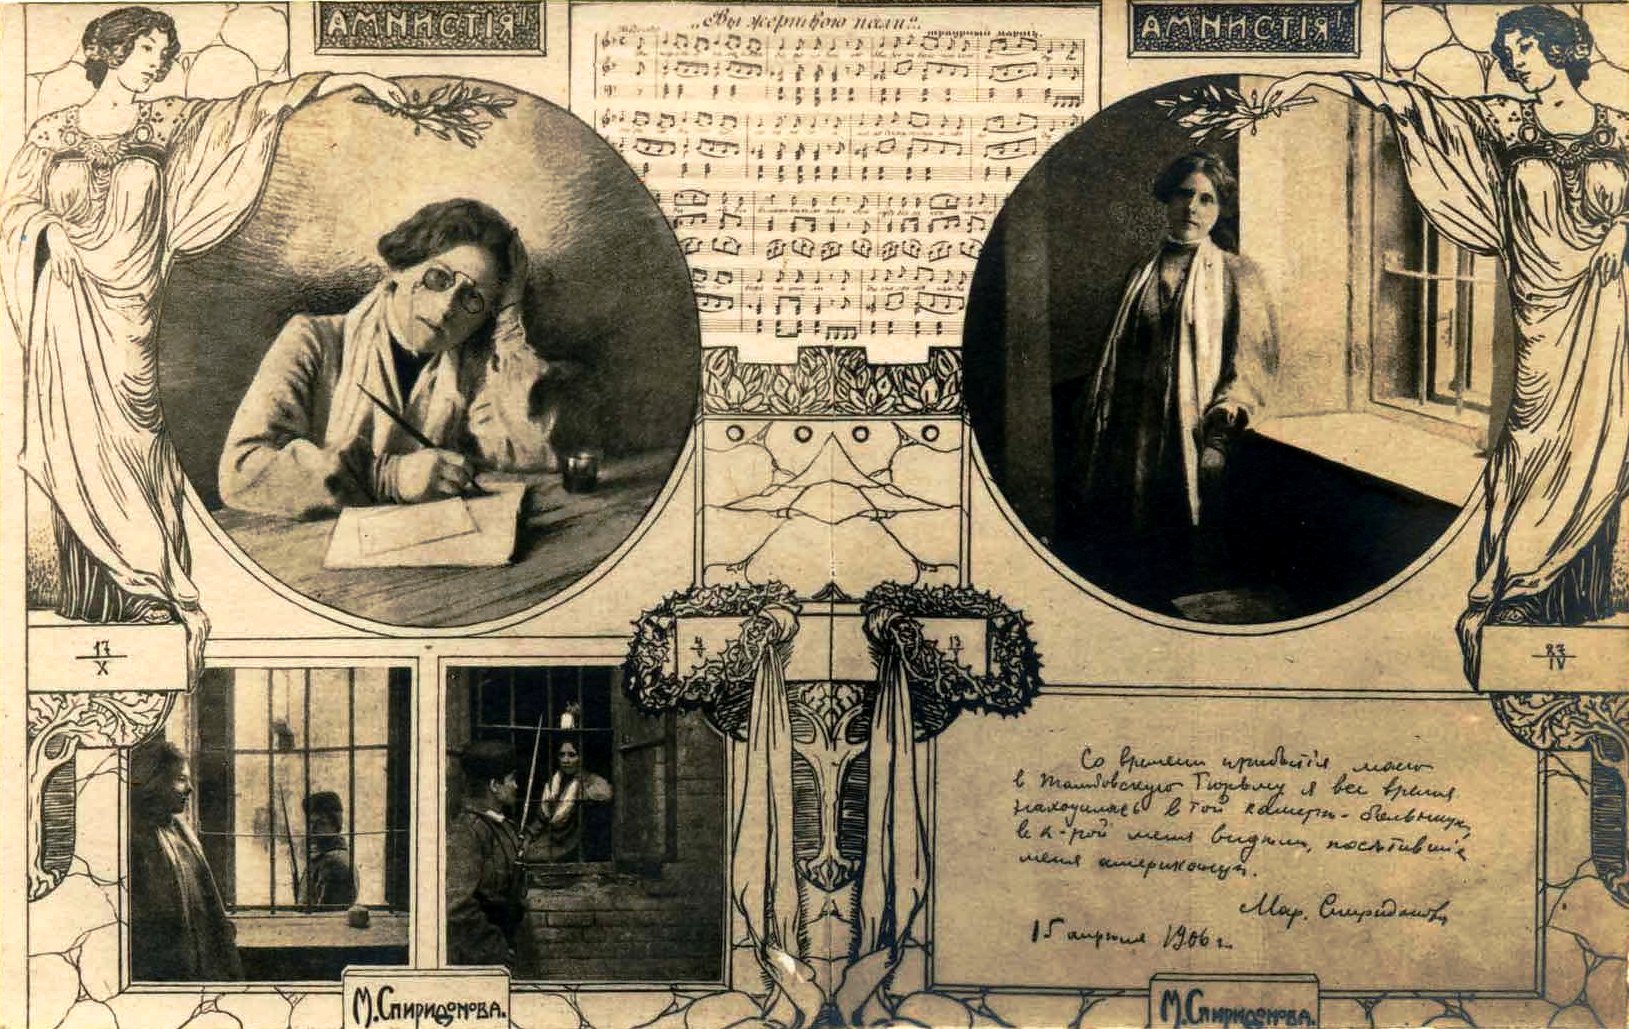 АМНИСТІЯ!
„Вы жертвою пали!..
траурный маршъ.
АМНИСТІЯ!
17
X
4
13
27
IV
Со времени прибытія моего
в Тамбовскую Тюрьму я все время
находилась в той камерѣ-больницы,
в к-рой меня видѣли, посѣтившіе
меня американцы.
Мар. Спиридонова
15 апрѣля 1906 г.
М.СПИРИДОНОВА.
М.СПИРИДОНОВА.